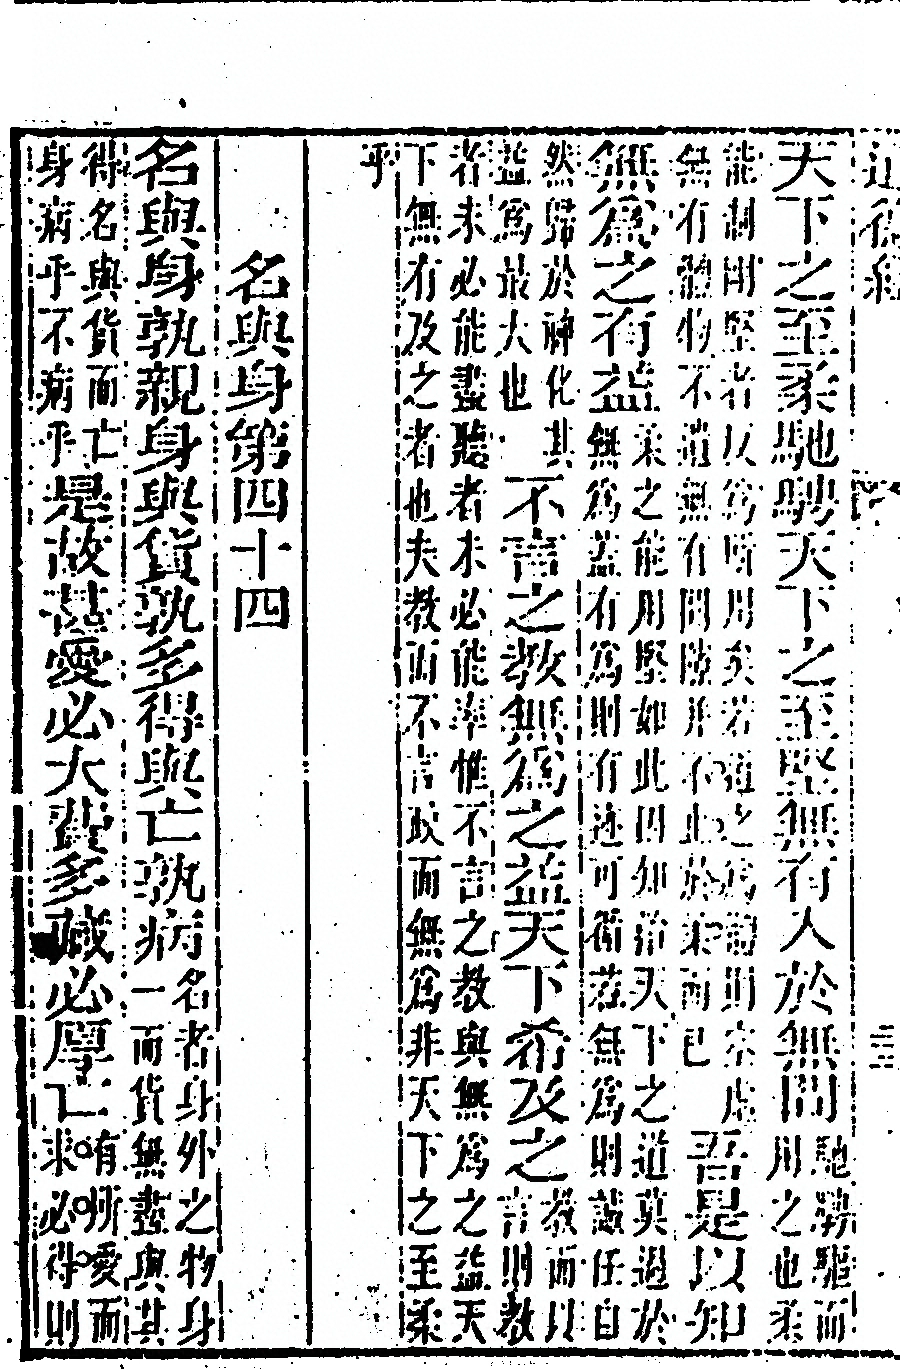 天下之至柔馳騁天下之至堅無有人於無間馳騁驅而
用之也柔
能制剛堅者反為所用矣若道之為則虛
無有體物不遺無有間隙并不止於柔而已
吾是以知
無為之有益柔之能用堅如此因知治天下之道莫過於
無為蓋有為則有迹可循若無為則誠任自
然歸於神化其
益為最大也
不言之教無為之益天下希及之教而以
言則教
者未必能盡聽者未必能率惟不言之教與無為之益天
下無有及之者也夫教而不言政而無為非天下之至柔
乎
名與身第四十四
名與身孰親身與貨孰多得與亡孰病名者身外之物身
一而貨無盡與其
得名與貨而亡
身病乎不病乎
是故甚愛必大費多藏必厚亡有所愛而
求必得則